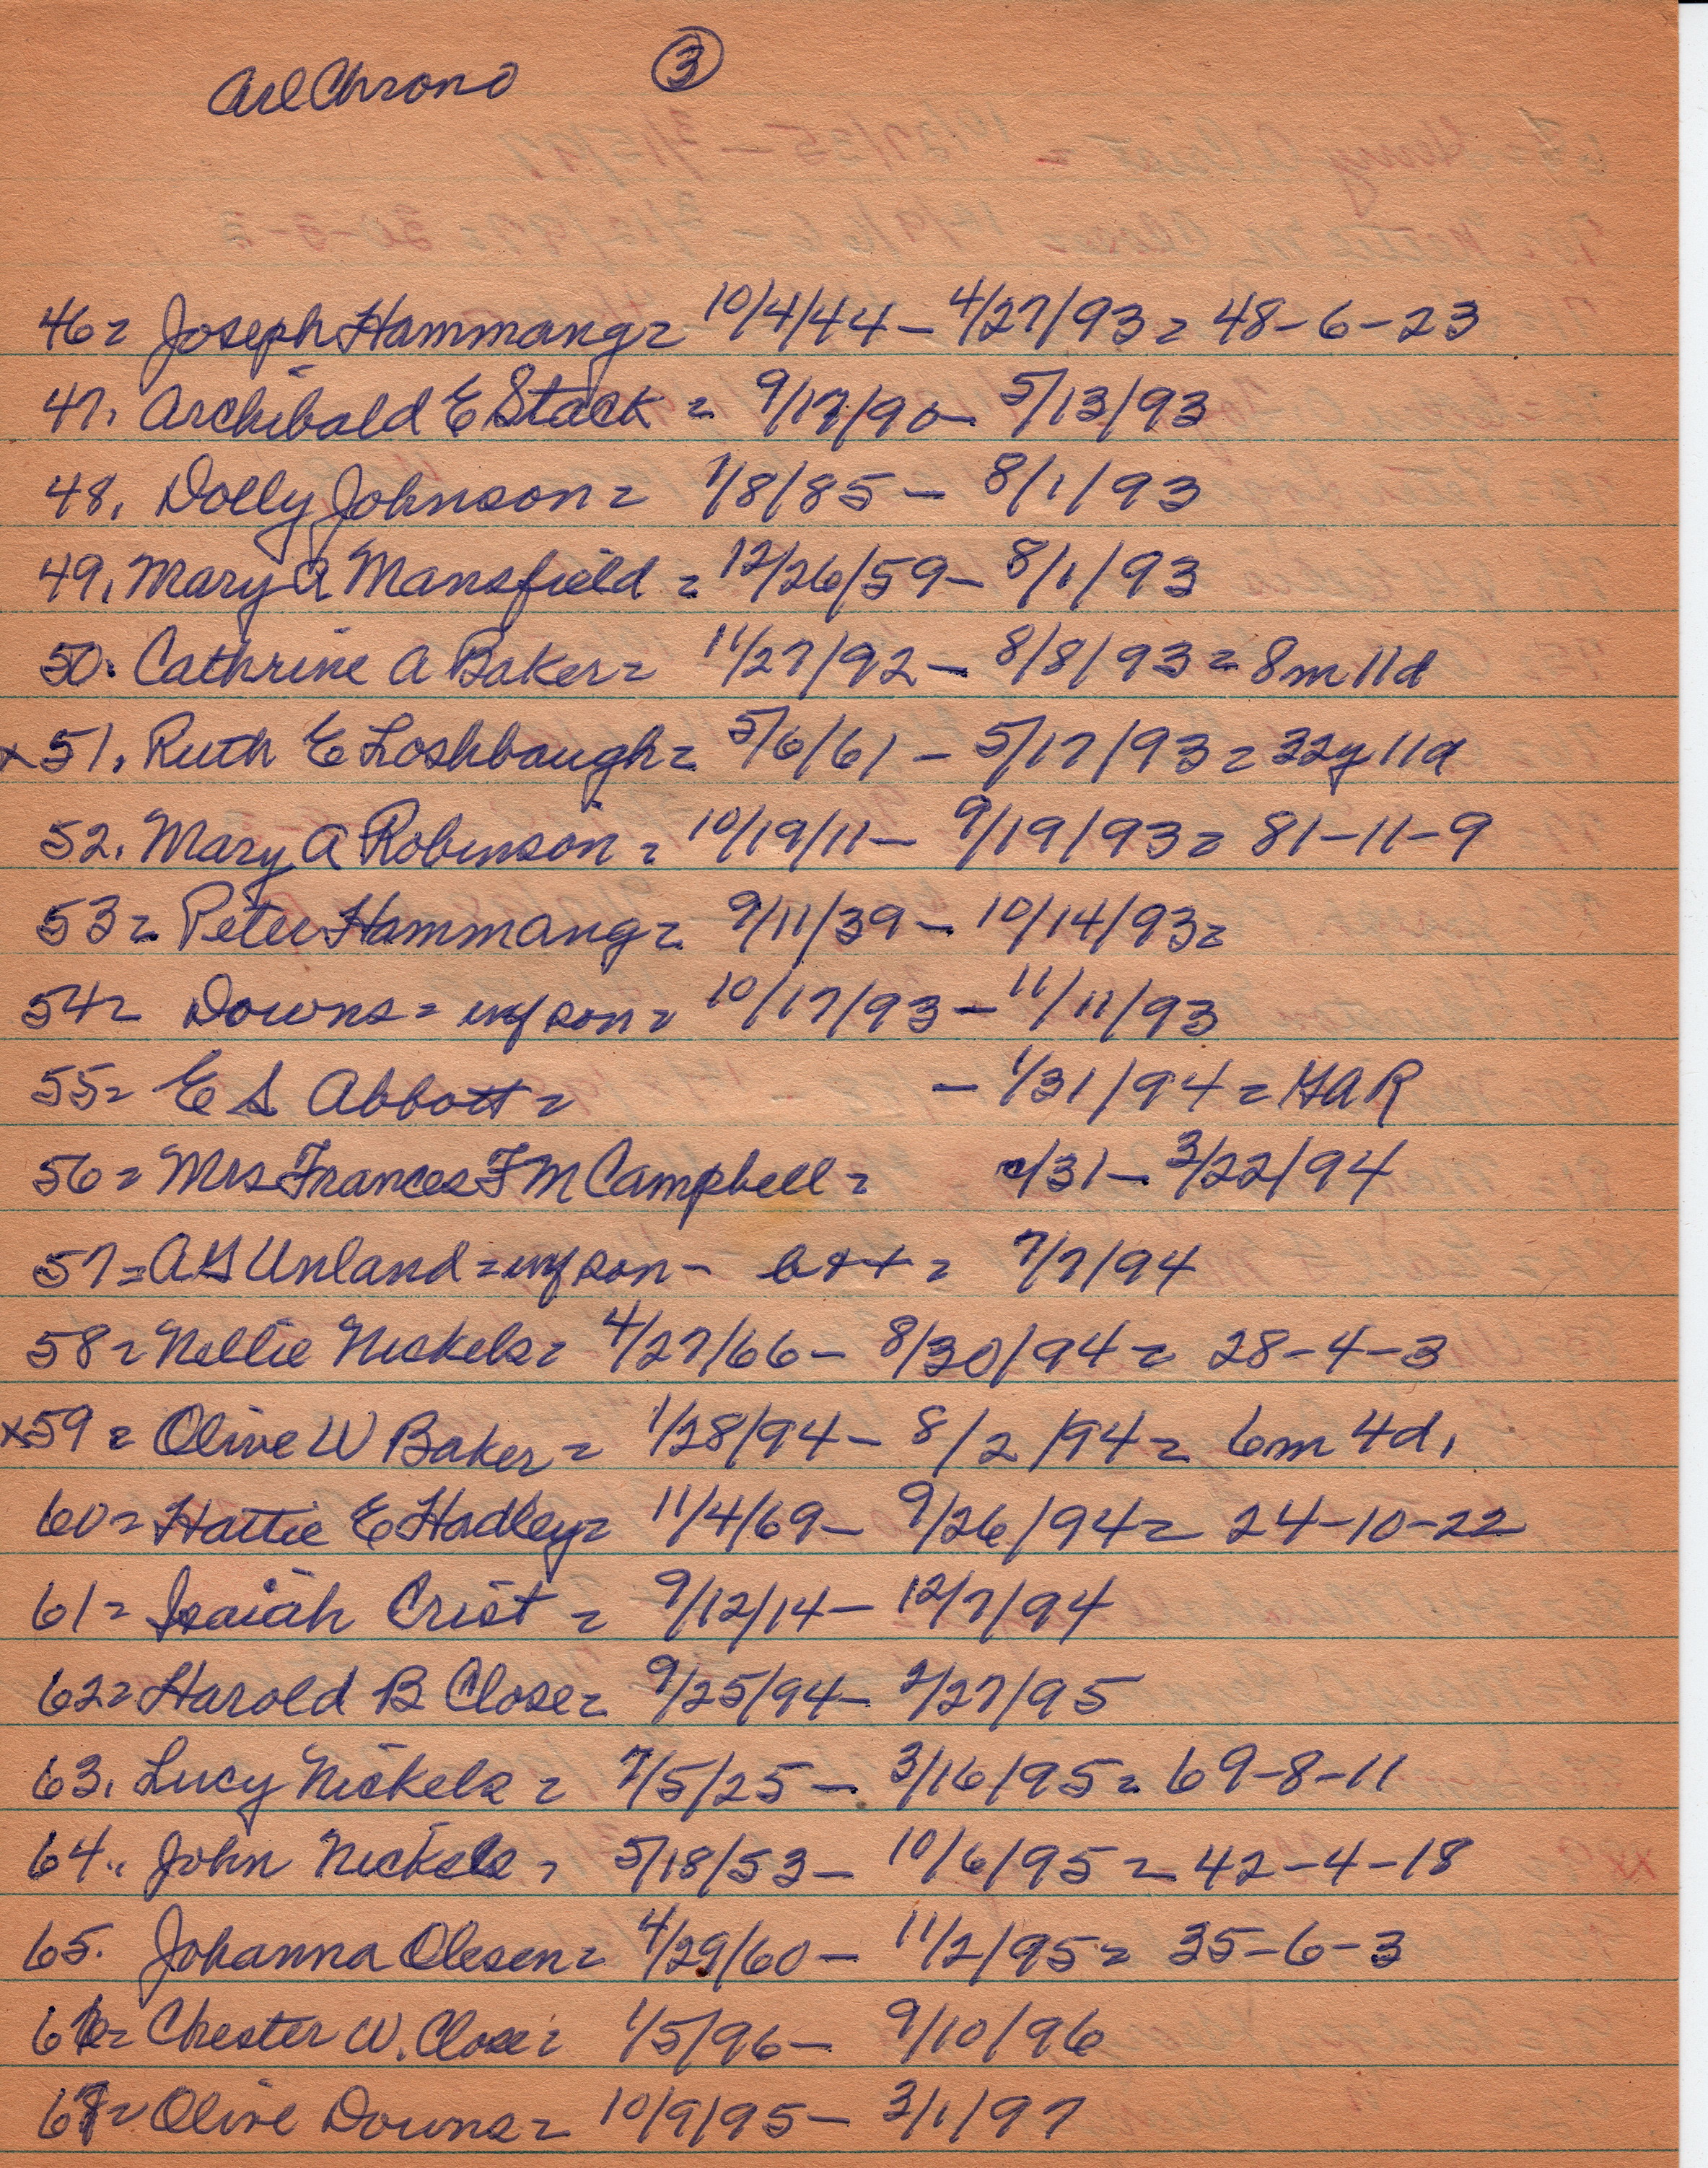 Arl Chrono ③
46= Joseph Hammang= 10/4/44 - 4/27/93= 48-6-23
47. Archibald E Stack = 9/17/90- 5/13/93
48. Dolly Johnson= 1/8/85 - 8/1/93
49. Mary A Mansfield = 12/26/59- 8/1/93
50. Cathrine A Baker= 11/27/92- 8/8/93= 8m 11d
x51. Ruth E Loshbaugh= 5/6/61 - 5/17/93= 32y 11d
52. Mary A Robinson = 10/19/11- 9/19/93= 81-11-9
53= Peter Hammang= 9/11/39- 10/14/93=
54= Downs= inf son= 10/17/93- 11/11/93
55= E S Abbott= - 1/31/94= GAR
56= Mrs Frances F M Campbell= /31- 3/22/94
57= A G Unland= inf son- b++= 7/7/94
58= Nellie Nickels= 4/27/66- 8/30/94= 28-4-3
x59= Olive W Baker= 1/28/94- 8/2/94= 6m 4d.
60= Hattie E Hadley= 11/4/69- 9/26/94= 24-10-22
61= Isaiah Crist = 9/12/14- 12/7/94
62= Harold B Close= 9/25/94- 2/27/95
63. Lucy Nickels = 7/5/25- 3/16/95= 69-8-11
64.. John Nickels = 5/18/53- 10/6/95= 42-4-18
65. Johanna Olesen= 4/29/60- 11/2/95= 35-6-3
66= Chester W. Close= 1/5/96- 9/10/96
67= Olive Downs= 10/9/95- 3/1/97